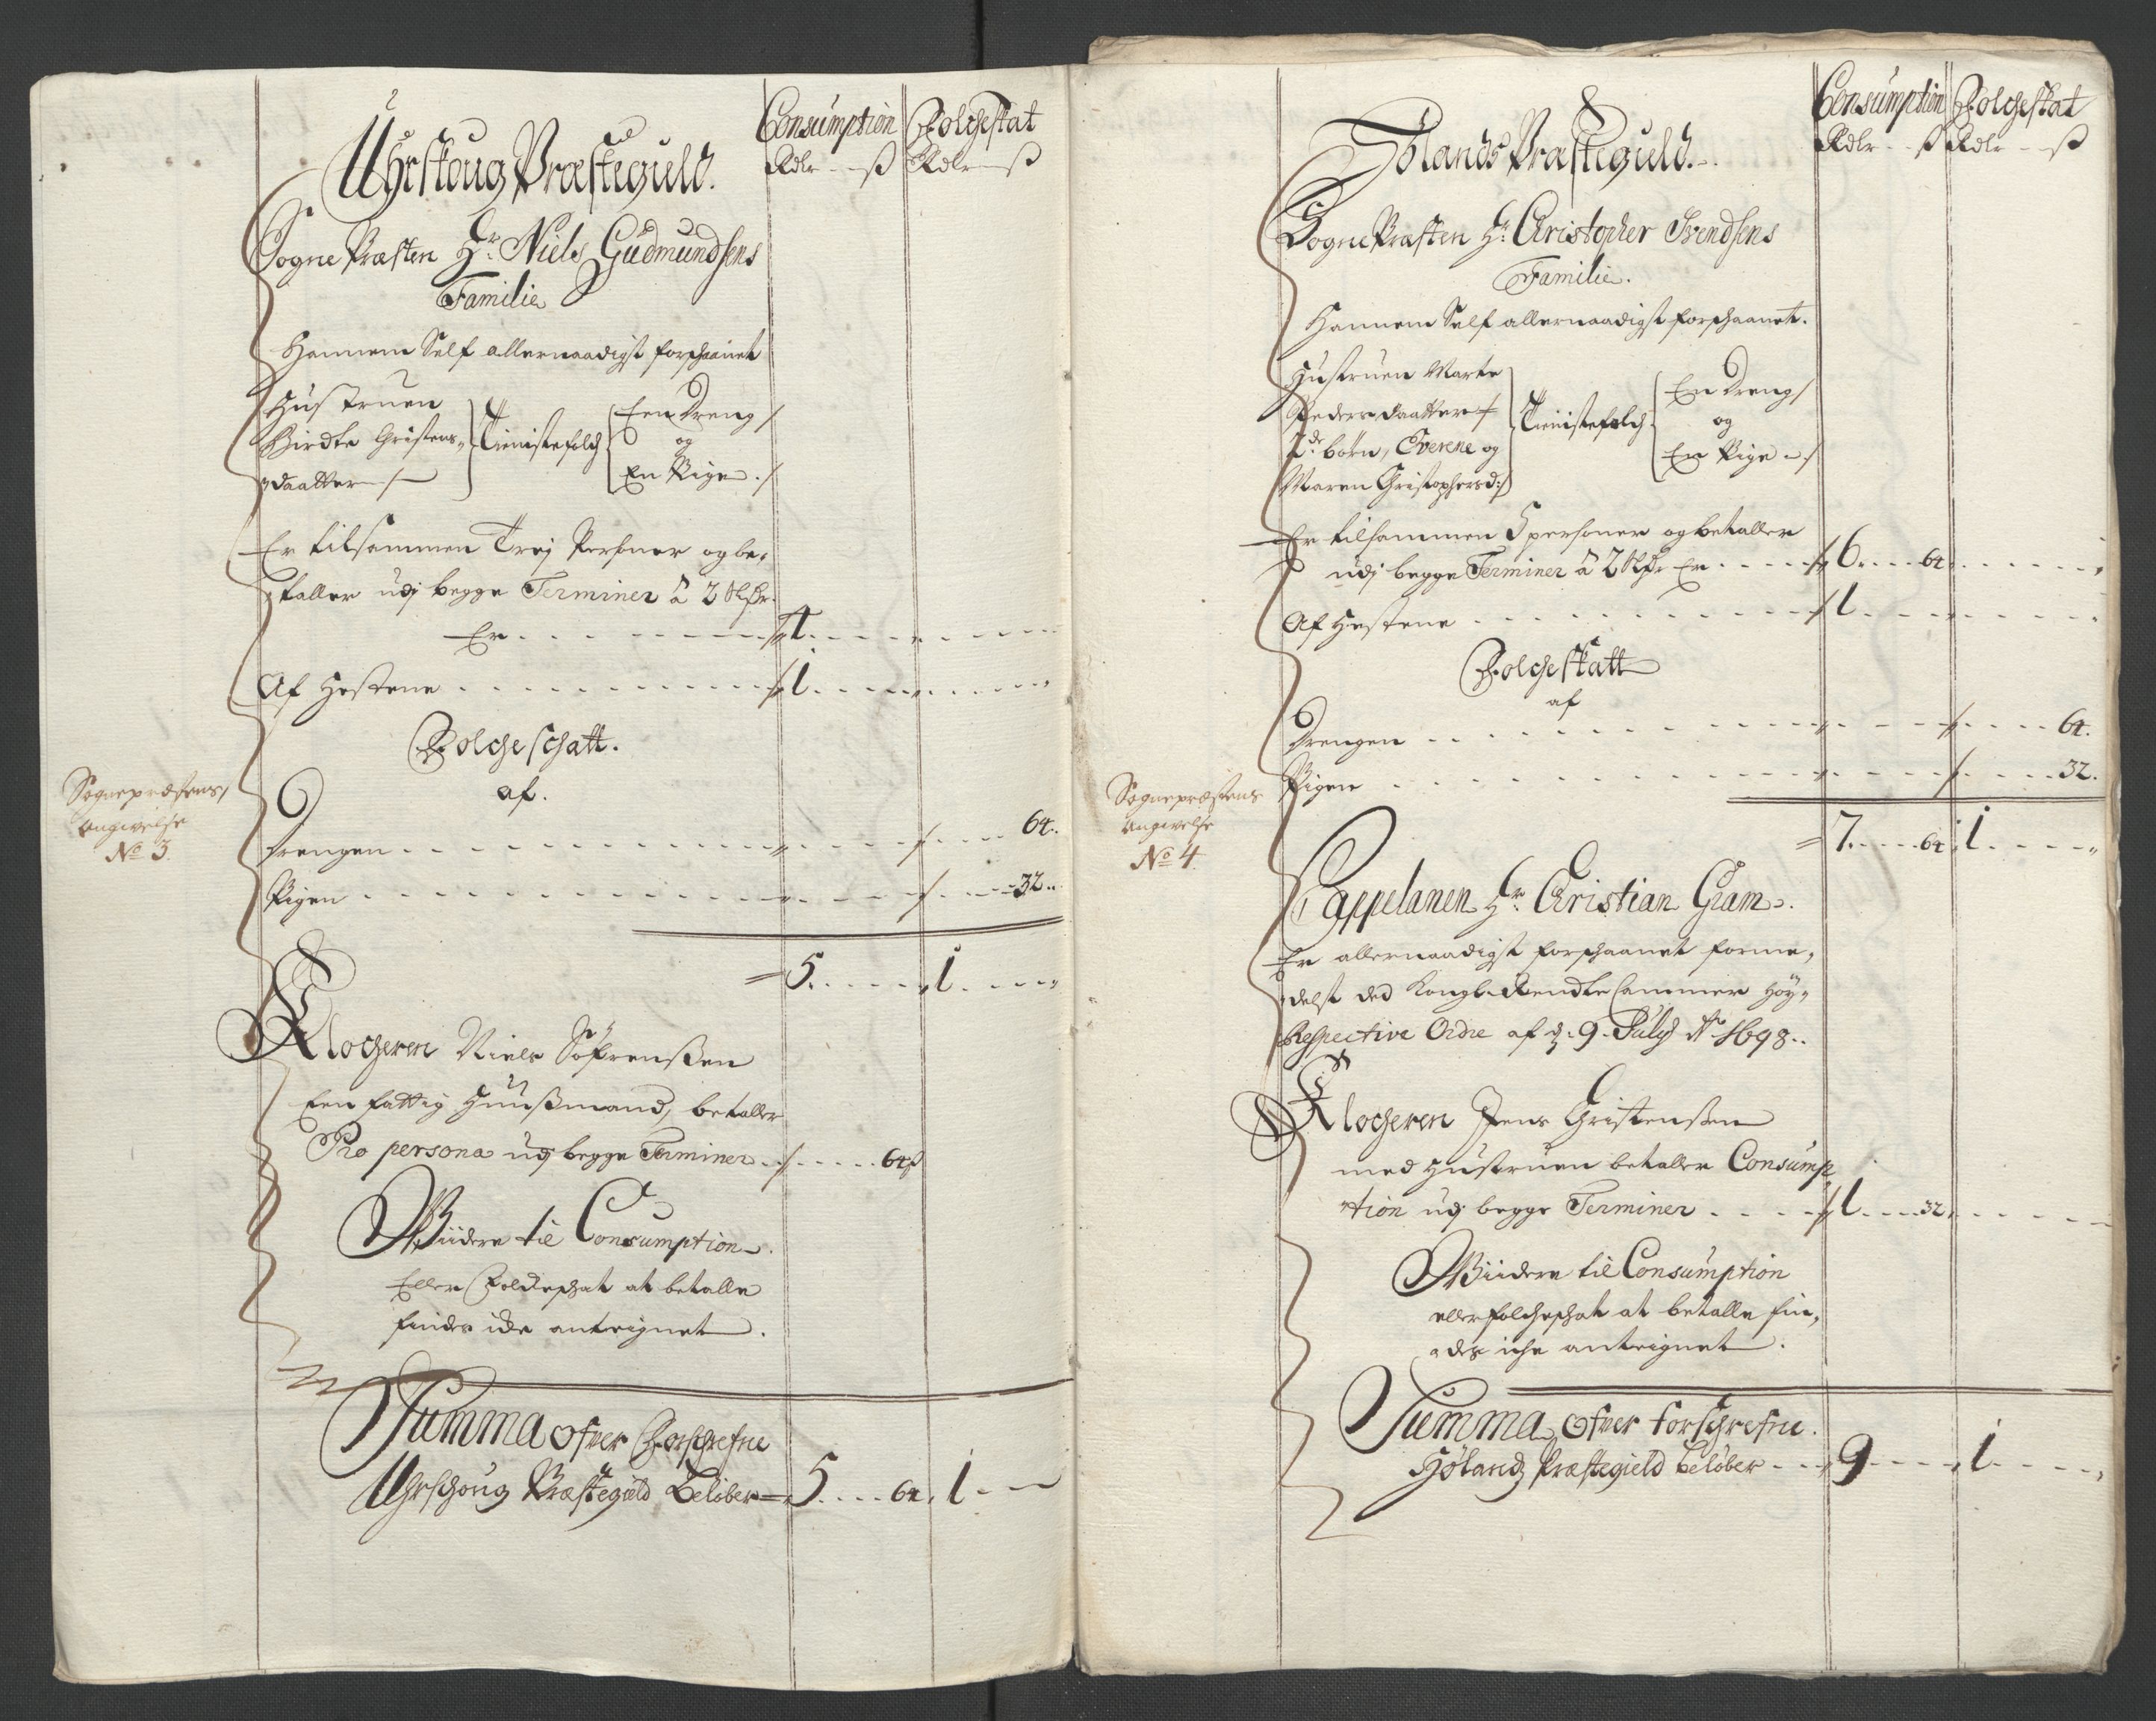 Consumption Folcheskat
Rdlr - - ß Rdlr - - ß
Uhrskoug Præsteguld.
Sogne Præsten Hr. Niels Gudmundsens
Familie
Hannem Self allernaadigst forschaanet
Hustruen
Birdte Christens-
daatter /
Tienistefolch
Een Dreng /
og
En Pige . /
Er tilsammen Trej Personer og be-
taller udj begge Terminer â 2 Rdr.
Er . . . 4 . . .
Af Hestene . . . 1 . . .
Folcheschatt.
af.
Sognepræstens
Angivelse
No 3.
Drengen . . . 64.
Pigen . . . 32..
= 5 . . . 1 . . .
Klocheren Niels Söfrenßen
Een fattig Huußmand, betaller
Pro persona udj begge Terminer . . . 64 ß
Wiidere til Consumption.
Eller Folcheschat at betalle
findes iche anteignet.
Summa Ofver Forschrefne
Uhrschoug Præstegield Beløber = 5 . . . 64. 1 - -
Consumption Folcheskat
Rdlr - - ß Rdlr - - ß
Hölands Præsteguld.
Sogne Præsten Hr. Christopher Svendsens
Familie.
Hannem Self allernaadigst forschaanet.
Hustruen Marte
Pedersdaatter /
2de börn, Everene og
Maren Christophersd:
Tienistefolch
En Dreng /
og
En Pige . /
Er tilsammen 5 personer og betaller
udj begge Terminer â 2 Rdr Er . . . 6 . . . 64
Af Hestene . . . 1 . . .
Folcheskatt
af
Drengen . . . 64.
Pigen . . . 32.
Sognepræstens
Angivelse
No 4.
= 7 . . . 64 . 1 . . .
Cappelanen Hr. Christian Gram.
Er allernaadigst forschaanet forme-
delst ded Kongl. Rendte Cammer Höy-
Respective Ordre af d. 9. July Ao 1698..
Klocheren Jens Christenßen
med Hustruen betaller Consump-
tion udj begge Terminer . . . 1 . . . 32
Wiidere til Consumption
eller folcheschat at betalle fin-
des iche anteignet.
Summa Ofver forschrefne.
Hölands Præstegield beløber . . . 9 . . . 1 . . .